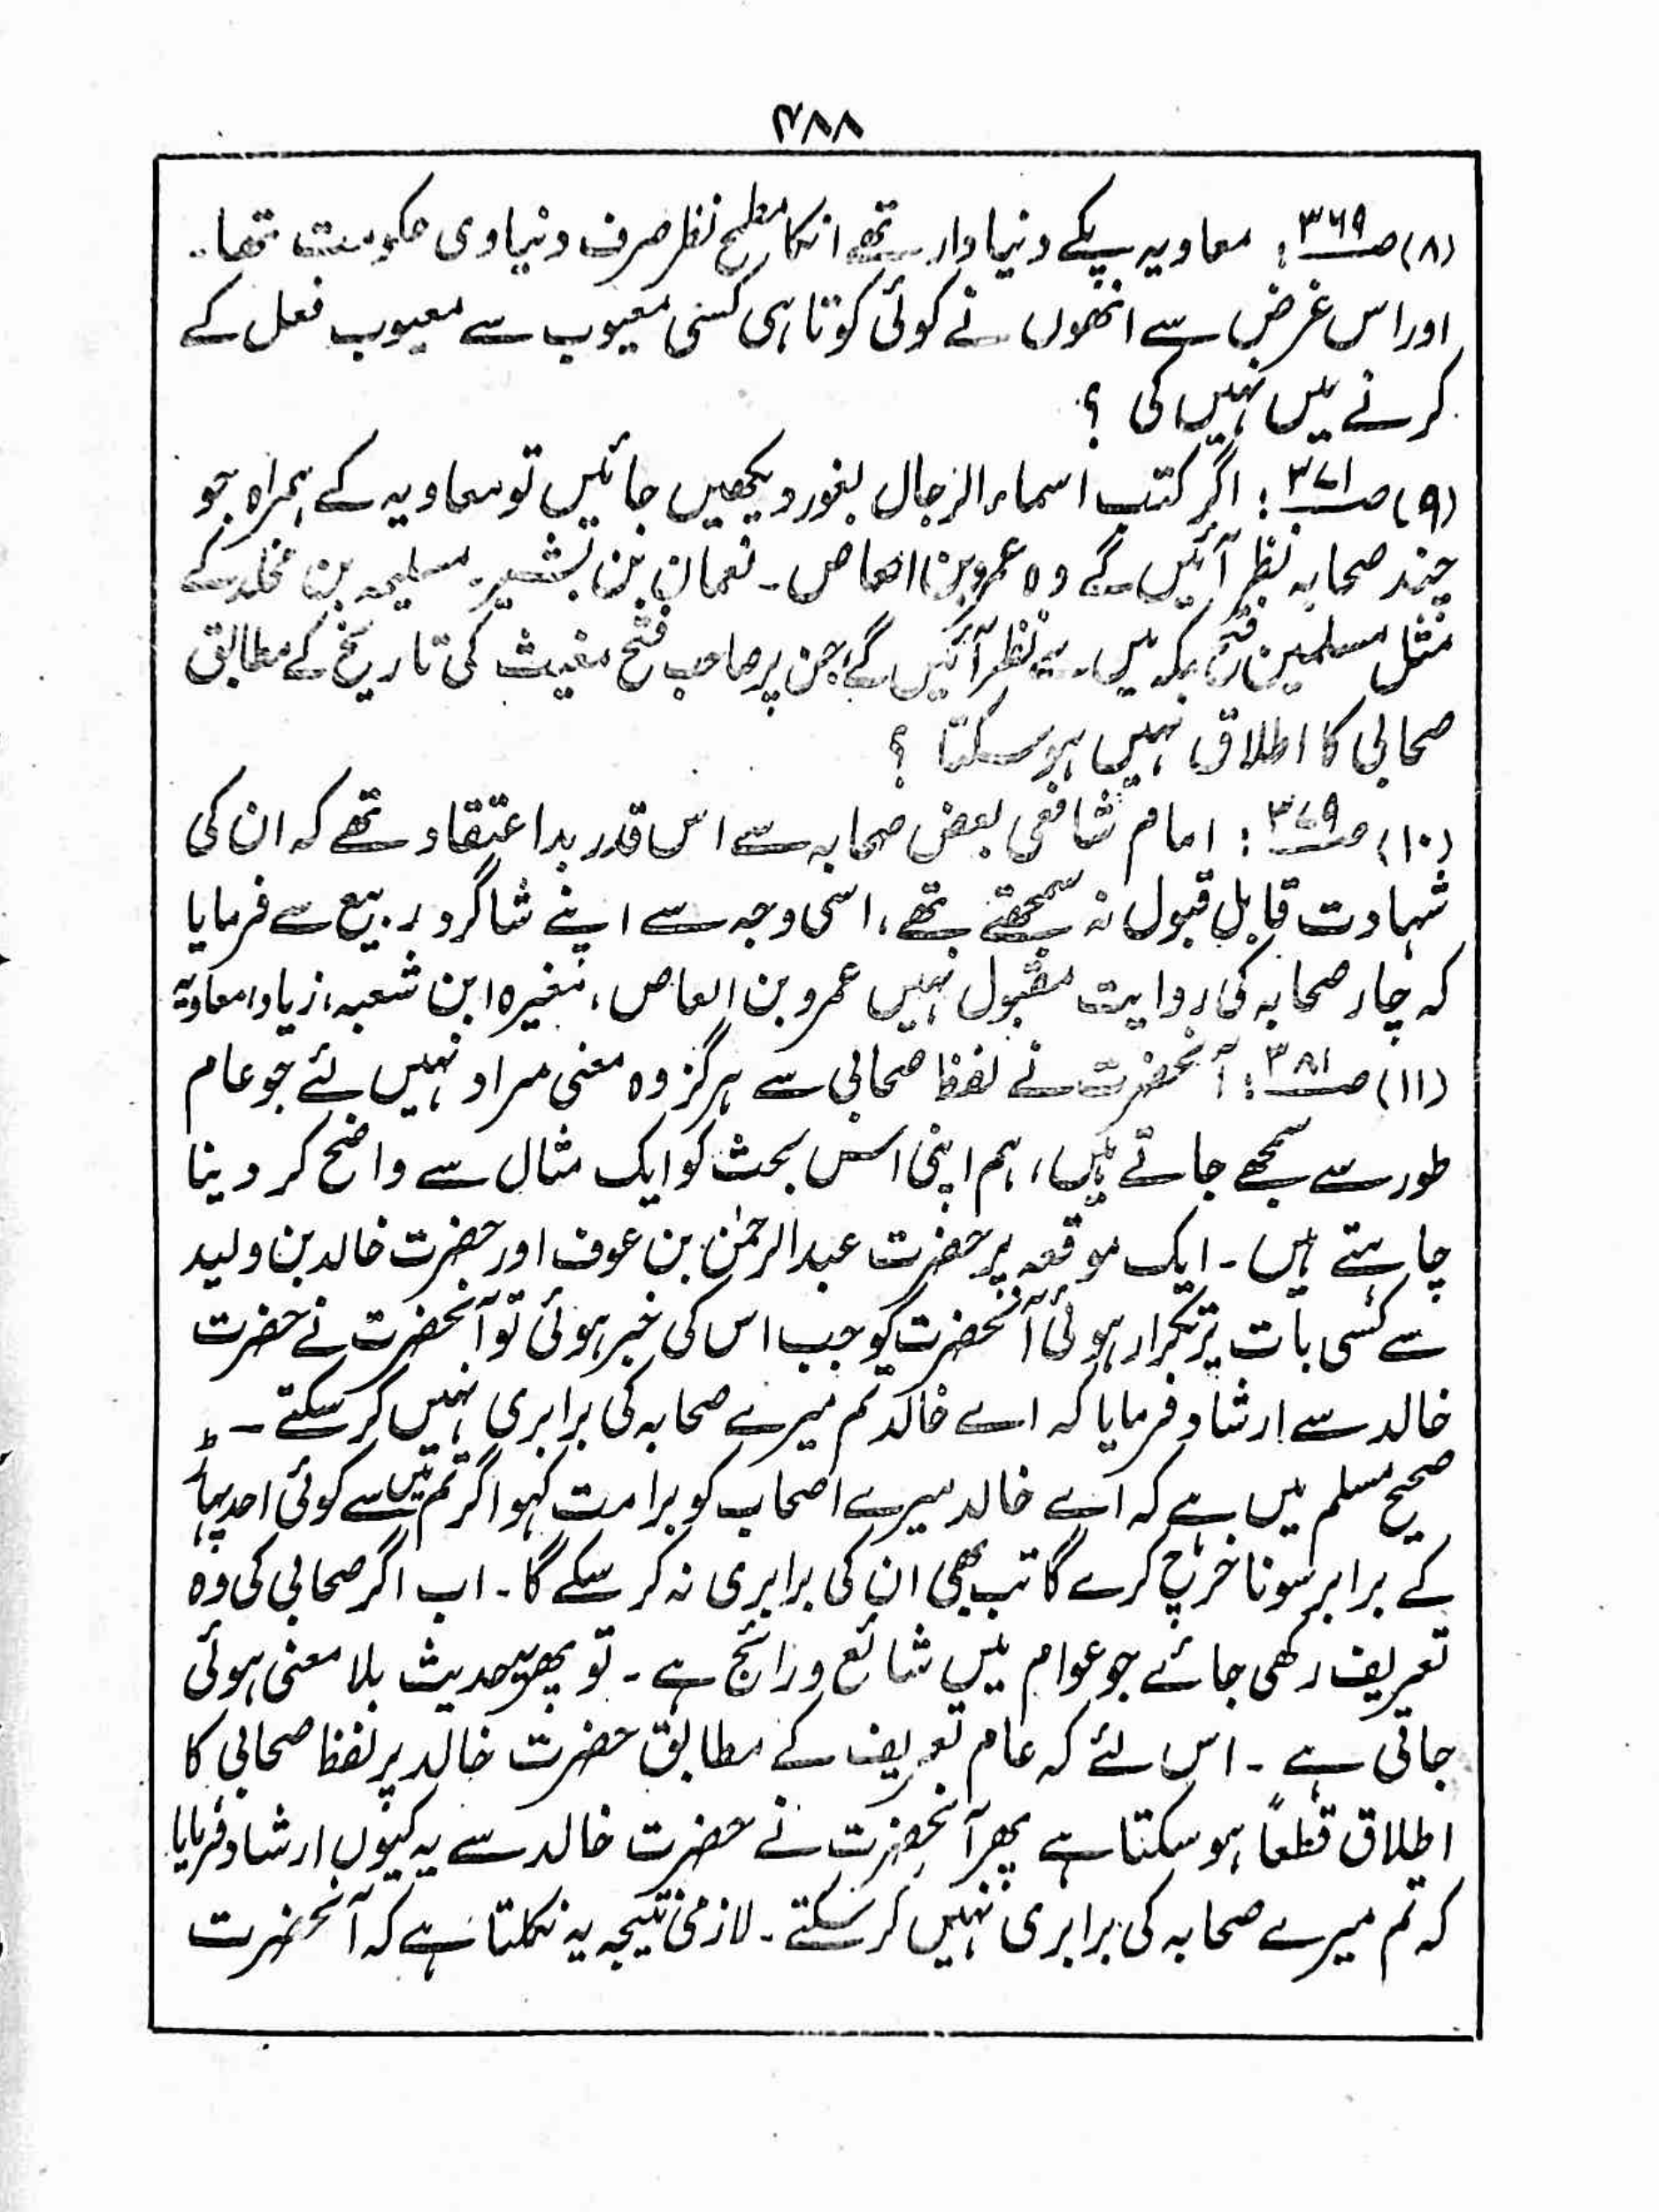 ۴۸۸
(۸) صـ۳۶۹ : معاویہ پکے دنیادار تھے انکا مطمح نظر صرف دنیاوی حکومت تھا۔
اور اس غرض سے انھوں نے کوئی کوتاہی کسی معیوب سے معیوب فعل کے
کرنے میں نہیں کی ؟
(۹) صـ۳۷۱ : اگر کتب اسماء الرجال بغور دیکھیں جائیں تو معاویہ کے ہمراہ جو
چند صحابہ نظر آئیں گے وہ عمرو بن العاص ۔ نعمان بن بشیر ۔ مسلیمہ بن مخلد کے
مثل مسلمین فتح مکہ میں سے نظر آئیں گے جن پر صاحب فتح مغیث کی تاریخ کے مطابق
صحابی کا اطلاق نہیں ہو سکتا ؟
(۱۰) صـ۳۷۹ : امام شافعی بعض صحابہ سے اس قدر بداعتقاد تھے کہ ان کی
شہادت قابل قبول نہ سمجھتے تھے، اسی وجہ سے اپنے شاگرد ربیع سے فرمایا
کہ چار صحابہ کی روایت مقبول نہیں عمرو بن العاص، مغیرہ ابن شعبہ، زیاد، معاویہ
(۱۱) صـ۳۸۱ : آنحضرت نے لفظ صحابی سے ہرگز وہ معنی مراد نہیں لئے جو عام
طور سے سمجھے جاتے ہیں، ہم اپنی اس بحث کو ایک مثال سے واضح کر دینا
چاہتے ہیں ۔ ایک موقعہ پر حضرت عبدالرحمٰن بن عوف اور حضرت خالد بن ولید
سے کسی بات پر تکرار ہوئی آنحضرت کو جب اس کی خبر ہوئی تو آنحضرت نے حضرت
خالد سے ارشاد فرمایا کہ اے خالد تم میرے صحابہ کی برابری نہیں کر سکتے ۔
صحیح مسلم میں ہے کہ اے خالد میرے اصحاب کو برا مت کہو اگر تم میں سے کوئی احد پہاڑ
کے برابر سونا خرچ کرے گا تب بھی ان کی برابری نہ کر سکے گا ۔ اب اگر صحابی کی وہ
تعریف رکھی جائے جو عوام میں شائع و رائج ہے ۔ تو پھر یہ حدیث بلا معنی ہوئی
جاتی ہے ۔ اس لئے کہ عام تعریف کے مطابق حضرت خالد پر لفظ صحابی کا
اطلاق قطعاً ہو سکتا ہے پھر آنحضرت نے حضرت خالد سے یہ کیوں ارشاد فرمایا
کہ تم میرے صحابہ کی برابری نہیں کر سکتے ۔ لازمی نتیجہ یہ نکلتا ہے کہ آنحضرت